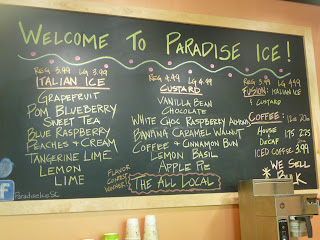 WELCOME TO PARADISE ICE!
REG 3.99 LG 3.99
ITALIAN ICE
GRAPEFRUIT
POM BLUEBERRY
SWEET TEA
BLUE RASPBERRY
PEACHES & CREAM
TANGERINE LIME
LEMON
LIME
REG 4.49 LG 4.99
CUSTARD
VANILLA BEAN
CHOCOLATE
WHITE CHOC RASPBERRY
BANANA CARAMEL WALNUT
COFFEE & CINNAMON BUN
LEMON BASIL
APPLE PIE
FLAVOR
WINNER
THE ALL LOCAL
REG 3.99 LG 4.59
FUSION: ITALIAN ICE
& CUSTARD
COFFEE: 12oz 20oz
HOUSE & DECAF 1.75 2.25
ICED COFFEE 3.99
* WE SELL
f
ParadiseIceSC